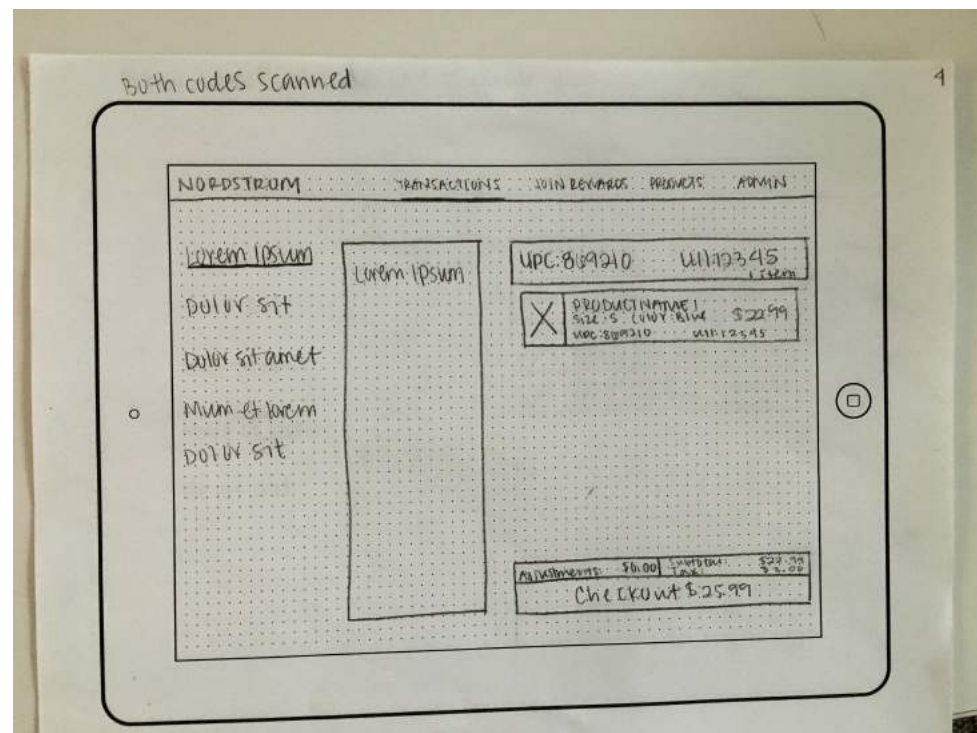 Both codes scanned
4
NORDSTROM TRANSACTIONS JOIN REWARDS PRODUCTS ADMIN
Lorem Ipsum
Dolor sit
Dolor sit amet
Mum et lorem
Dolor sit
Lorem Ipsum
UPC:809210 UII:12345
1 Item
PRODUCT NAME 1
Size: S Color: Blue $22.99
UPC:809210 UII:12345
Adjustments: $0.00 Subtotal: $22.99
Tax: $3.00
Checkout $25.99